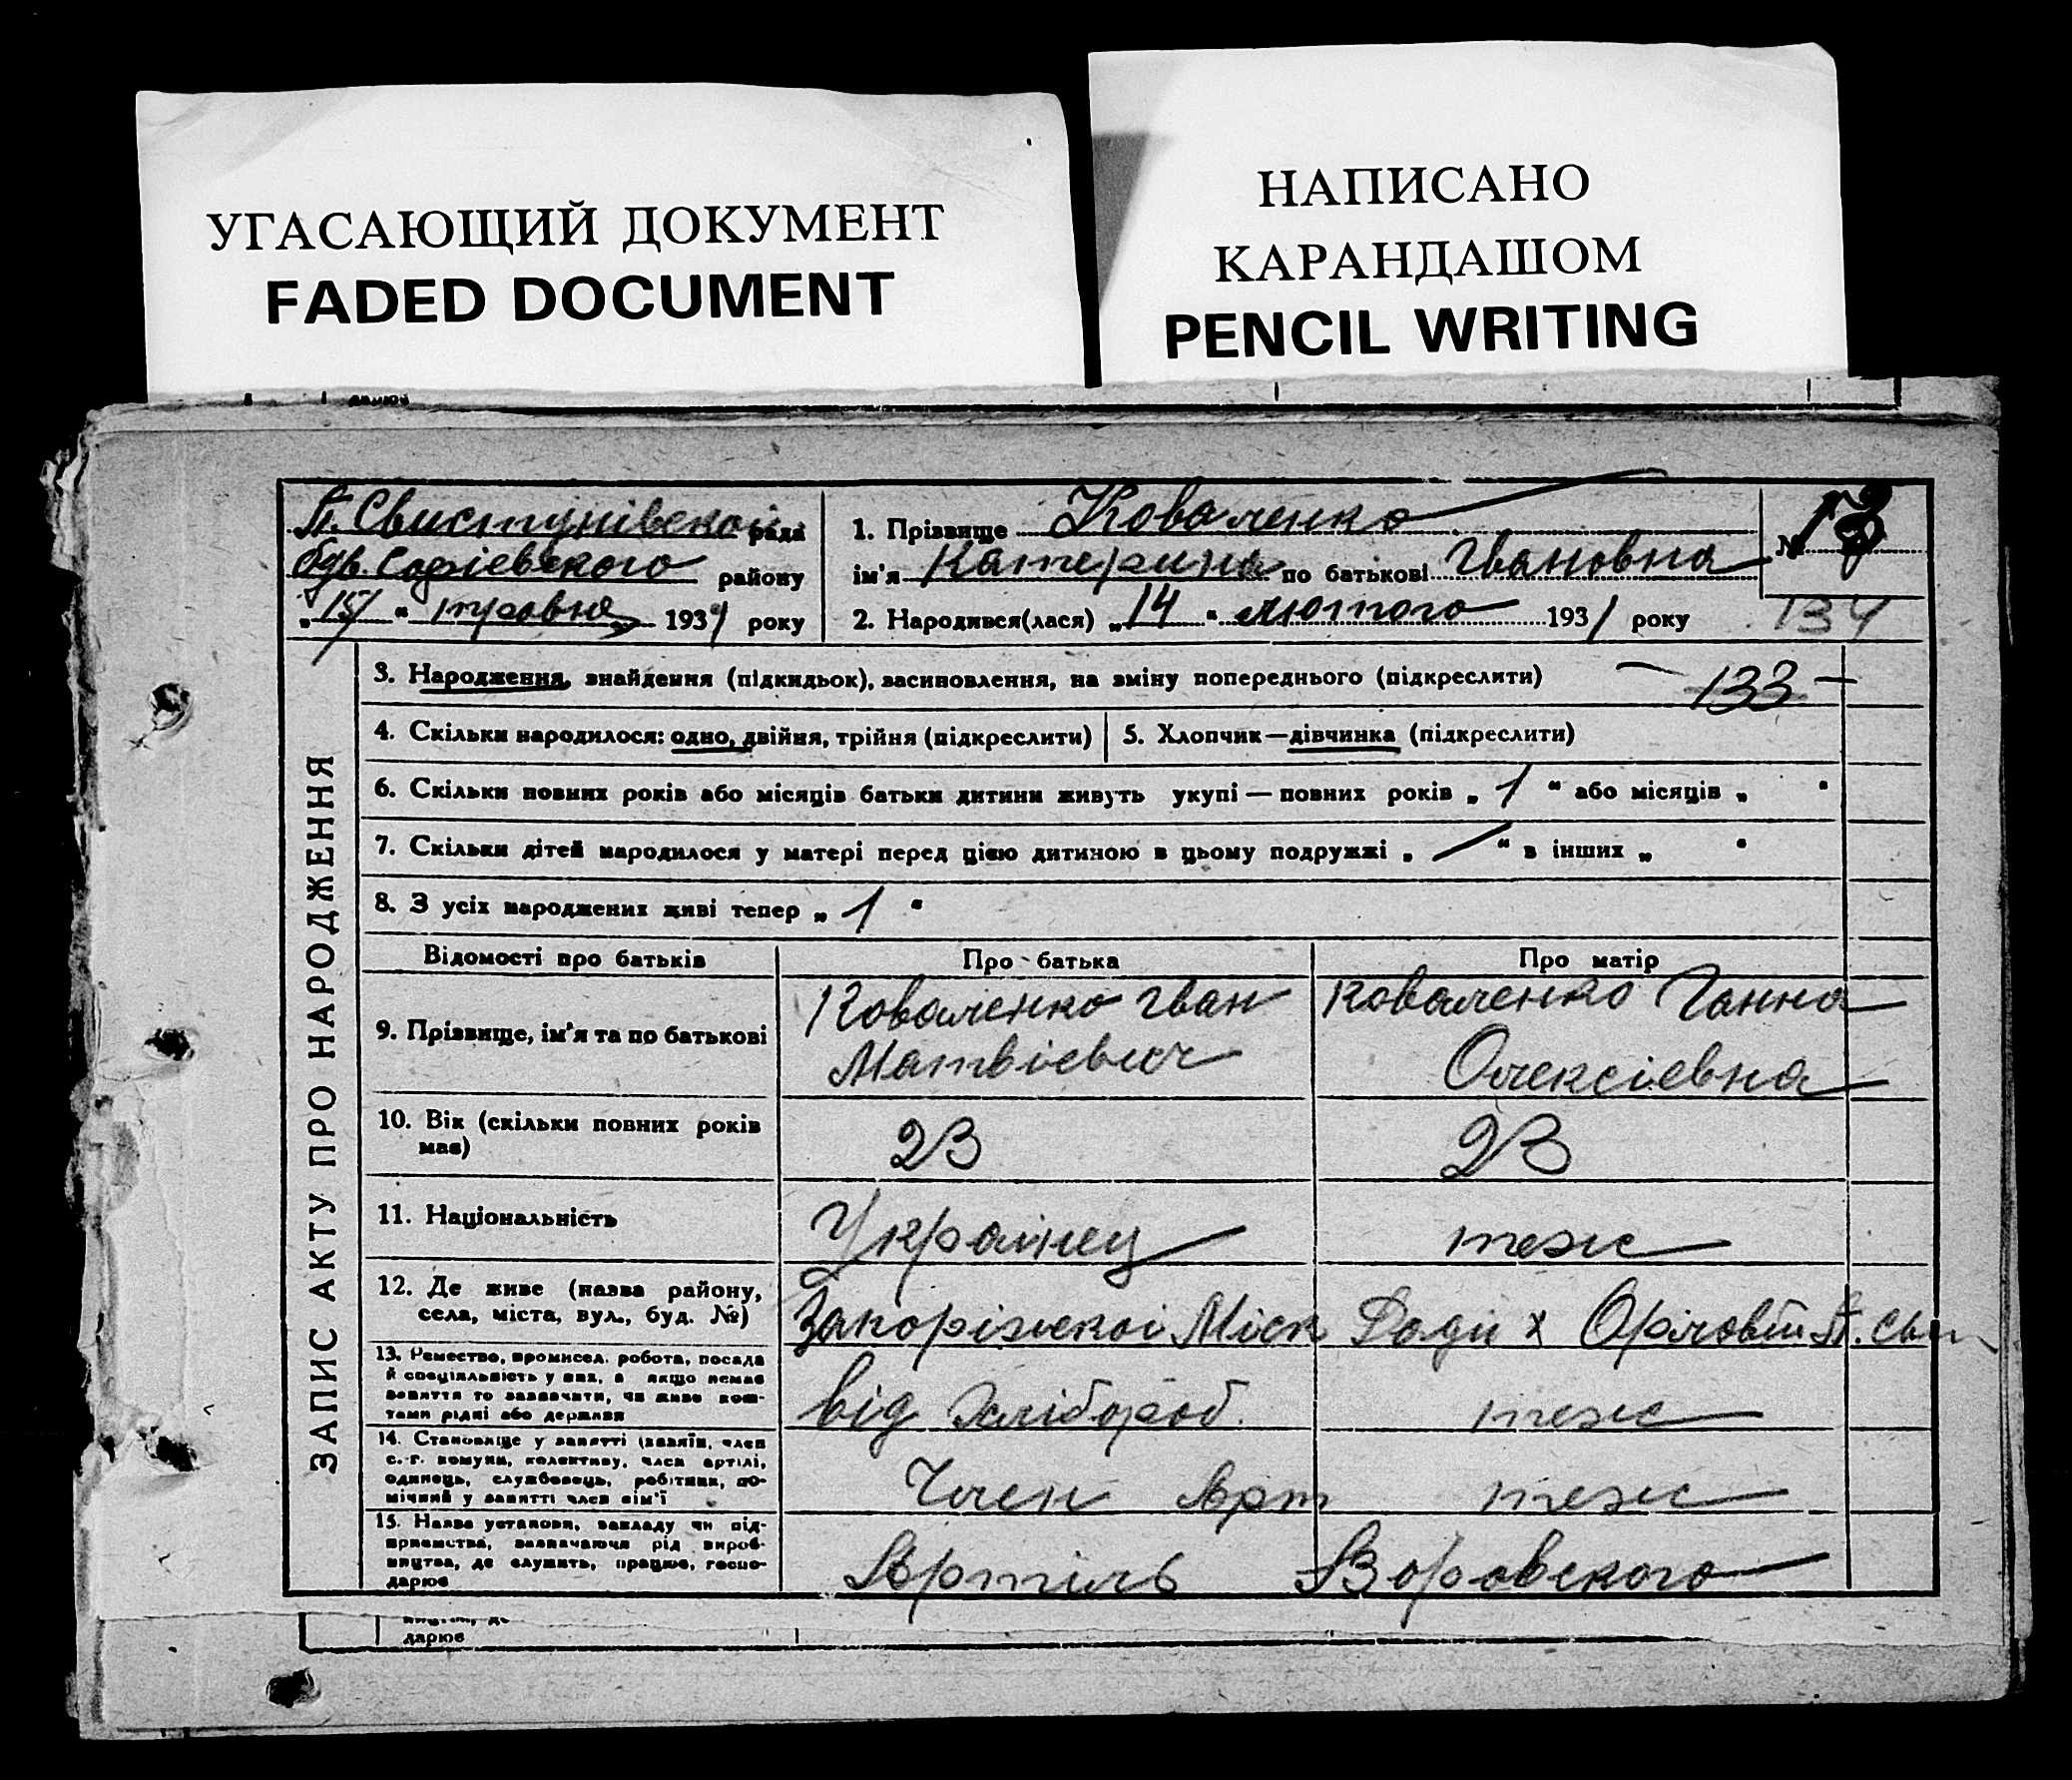 УГАСАЮЩИЙ ДОКУМЕНТ
FADED DOCUMENT
НАПИСАНО
КАРАНДАШОМ
PENCIL WRITING
дарює
П. Свистунівської рада
був. Софієвського району
„15“ травня 1931 року
1. Прізвище Коваленко
ім'я Катерина по батькові Івановна
2. Народився(лася) „14“ лютого 1931 року
№ 13
134
3. Народження, знайдення (підкидьок), засиновлення, на зміну попереднього (підкреслити)
— 133 —
4. Скільки народилося: одно, двійня, трійня (підкреслити)
5. Хлопчик—дівчинка (підкреслити)
6. Скільки повних років або місяців батьки дитини живуть укупі — повних років „1“ або місяців „ “
7. Скільки дітей народилося у матері перед цією дитиною в цьому подружжі „—“ в інших „ “
8. З усіх народжених живі тепер „1“
ЗАПИС АКТУ ПРО НАРОДЖЕННЯ
Відомості про батьків
Про батька
Про матір
9. Прізвище, ім'я та по батькові
Коваленко Іван
Матвієвич
Коваленко Ганна
Олексієвна
10. Вік (скільки повних років
має)
23
23
11. Національність
Українец
теж
12. Де живе (назва району,
села, міста, вул., буд. №)
Запоріжскої Міск Ради х Орловий П. Сви
13. Ремество, промисел, робота, посада
й спеціяльність у них, а якщо немає
заняття то зазначити, чи живе кош-
тами рідні або держави
від хлібороб.
теж
14. Становище у занятті (хазяїн, член
с.-г. комуни, колективу, член артілі,
одинець, службовець, робітник, по-
мічний у занятті член сім'ї
Член Арт
теж
15. Назва установи, закладу чи під-
приємства, зазначаючи рід вироб-
ництва, де служить, працює, госпо-
дарює
Артіль Воровского
дарює